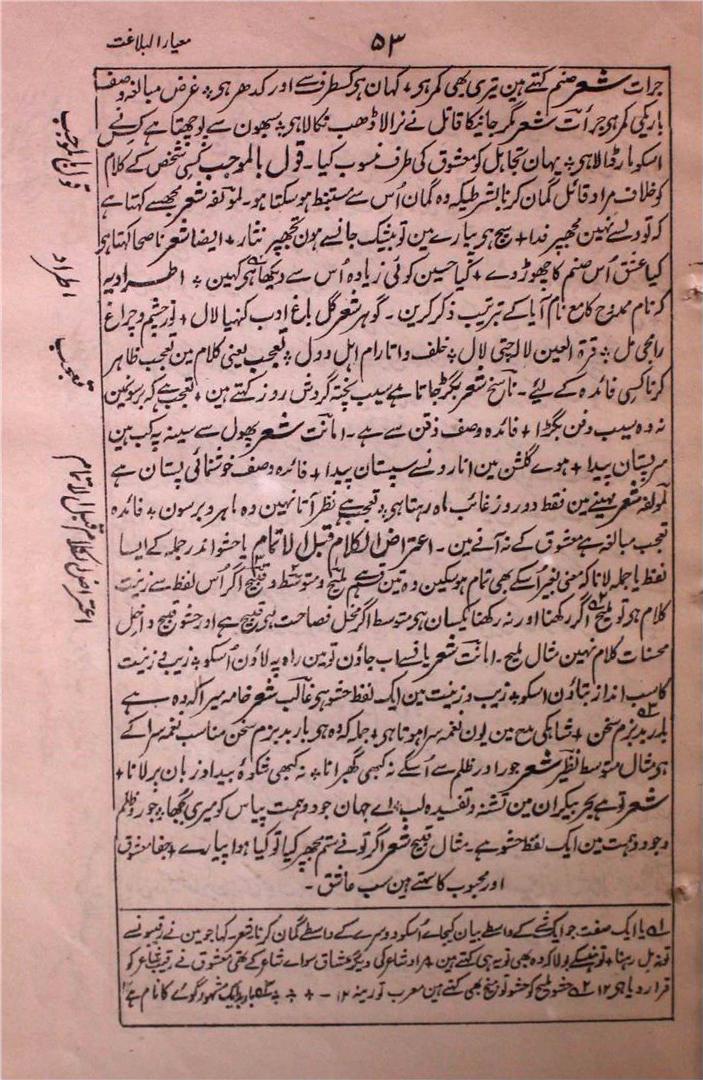 معیار البلاغت
۵۳
جرات شعر صنم کہتے ہین تیری بھی کمر ہو + کہان ہو کسطرف سے اور کدھر ہو ٭ غرض مبالغہ وصف
باریکی کمر ہو جرأت شعر مگر جانیکا قاتل نے نرالا ڈھب نکالا ہو ٭ سبھون سے پوچھتا ہے کن نے
اسکو مار ڈالا ہو ٭ یہان تجاہل کو معشوق کی طرف منسوب کیا - قول بالموجب کسی شخص کے کلام
کو خلاف مراد قائل گمان کرنا بشرطیکہ وہ گمان اُس سے مستنبط ہو سکتا ہو - لمؤلفہ شعر مجھسے کہتا ہے
کہ تو دلسے نہین مجھپر فدا + سچ ہو پیارے مین تو بیشک جانسے ہون تجھپر نثار + ایضا شعر ناصحا کہتا ہو
کیا عشق اُس صنم کا چھوڑ دے + کیا حسین کوئی زیادہ اُس سے دیکھا ہو کہین ٭ اطراد یہ
کہ نام ممدوح کا مع نام آبا کے بترتیب ذکر کرین - گوہر شعر گل باغ ادب کنہیا لال + نور چشم و چراغ
رامجی مل ٭ قرۃ العین لالہ چتی لال ٭ خلف داتا رام اہل دول ٭ تعجب یعنی کلام مین تعجب ظاہر
کرنا کسی فائدہ کے لیئے - ناسخ شعر بگڑ جاتا ہے سیب پختہ گردش روز کہتے ہین + تعجب ہے کہ برسونمین
نہ وہ سیب ذقن بگڑا + فائدہ وصف ذقن سے ہے - امانت شعر پھول سے سینہ پہ کب ہین
سر پستان پیدا + ہوے گلشن مین انارونسے سپستان پیدا + فائدہ وصف خوشنمائی پستان ہے
لمؤلفہ شعر مہینے مین فقط دو روز غائب ماہ رہتا ہو ٭ تعجب ہے نظر آتا نہین وہ ماہرو برسون ٭ فائدہ
تعجب مبالغہ ہے معشوق کے نہ آنے مین - اعتراض الکلام قبل الاتمام یا حشو اندر جملہ کے ایسا
لفظ یا جملہ لانا کہ معنی بغیر اُسکے بھی تمام ہو سکین وہ تین قسم ہے ملیح و متوسط و قبیح اگر اُس لفظ سے زینت
کلام ہو تو ملیح اگر رکھنا اور نہ رکھنا یکسان ہو متوسط اگر مخل فصاحت ہو قبیح ہے اور حشو قبیح داخل
محسنات کلام نہین مثال ملیح - امانت شعر یا فساب جاؤن تو مین راہ پہ لاؤن اُسکو ٭ زیب زینت
کا سب انداز بتاؤن اسکو ٭ زیب و زینت مین ایک لفظ حشو ہو غالب شعر خامہ میرا کہ وہ ہے
باربد بزم سخن + شاہ کی مدح مین یون نغمہ سرا ہوتا ہو + جملہ کہ وہ ہو باربد بزم سخن مناسب نغمہ سرا کے
ہو مثال متوسط نظیر شعر جور اور ظلم سے اُسکے نہ کبھی گھبرانا ٭ نہ کبھی شکوۂ بیداد زبان پر لانا +
شعر تو ہے بحر بیکران مین تشنہ و تفسیدہ لب ٭ اے جہان جود و ہمت پیاس کو میری بجھا ٭ جور و ظلم
و جود و ہمت مین ایک لفظ حشو ہے - مثال قبیح شعر اگر تو نے ستم مجھپر کیا تو کیا ہوا پیارے + جفا معشوق
اور محبوب کا سہتے ہین سب عاشق -
قول بالموجب
اطراد
تعجب
اعتراض الکلام قبل الاتمام
۱ یا ایک صفت جو ایک شے کے واسطے بیان کیجاے اُسکو دوسرے کے واسطے گمان کرنا شعر کہا جو مین نے رقیبونسے
تو نہ مل رہنا + تو ہنسکے بولا کہ وہ بھی تو یہی کہتے ہین ٭ مراد شاعر کی دیگر عشاق سواے شاعر کے تھی معشوق نے رقیب شاعر کو
قرار دیا ہو ۱۲ ۲ حشو ملیح کو حشو لوزینج بھی کہتے ہین معرب لوزینہ ۱۲ - + ÷ + ۳ باربد ایک مشہور گویے کا نام ہے ۱۲